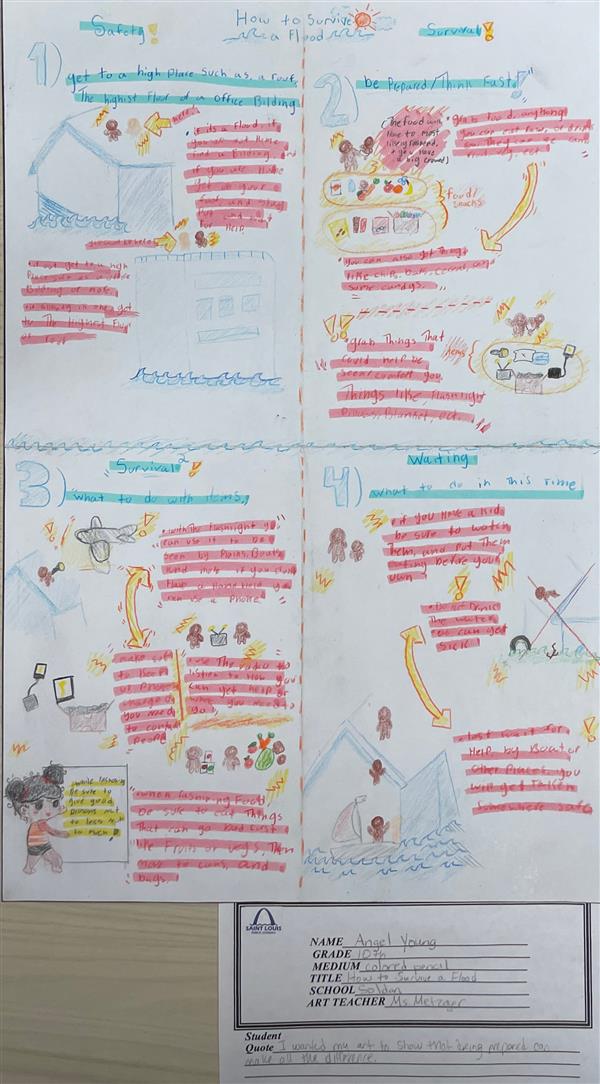 How to Survive
a Flood
Safety!
Survival!
1) get to a high place such as, a roof,
The highest Floor of a office Bilding
here!
if its a Flood, if
you are out Home
find a Building and
if you are Home
get on your
roof and stay
put and wait for
Help.
2) be Prepared/Think Fast!"
(The food will
Have to most
likely
you Have
a big crowd)
grab Food, anything
you can eat
food/
snacks
you can also get Things
like chips, bars, cereal, and
some candys.
!! grab Things That
could help be
seen/comfort you
Things like, Flashlight
Blanket, ect. !!
items
Survival 2!
3) what to do with items,
with the flashlight you
can use it to be
seen by Plains, Boats,
and more if you don't
Have a
can use a Phone
make sure
to keep
charged
you need
to contact
People
use The radio to
listen to How you
can get help or
where you need to
go
while
be sure to
give good
to less
to much
when Food
be sure to eat Things
That can go bad First
like Fruits or vegs, Then
move to cans, and
bags.
Waiting
4) what to do in this Time
if you Have a kid
be sure to watch
Them, and Put Them
before your
own
Do not Drink
The water
you can get
sick
last wait for
Help by Boat or
other Places, you
will get Taken
somewhere safe
SAINT LOUIS
PUBLIC SCHOOLS
NAME Angel Young
GRADE 10th
MEDIUM colored pencil
TITLE How to Survive a Flood
SCHOOL Soldan
ART TEACHER Ms. Metzger
Student
Quote I wanted my art to show that being prepared can
make all the difference.